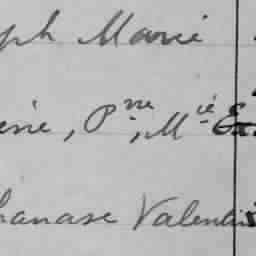 ph Marie
ène, Pre, Mie Ex
hanase Valentin